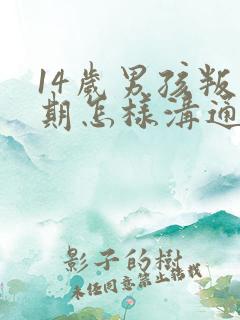 14歲男孩叛
期怎樣溝通
影子的樹
未经同意禁止转载